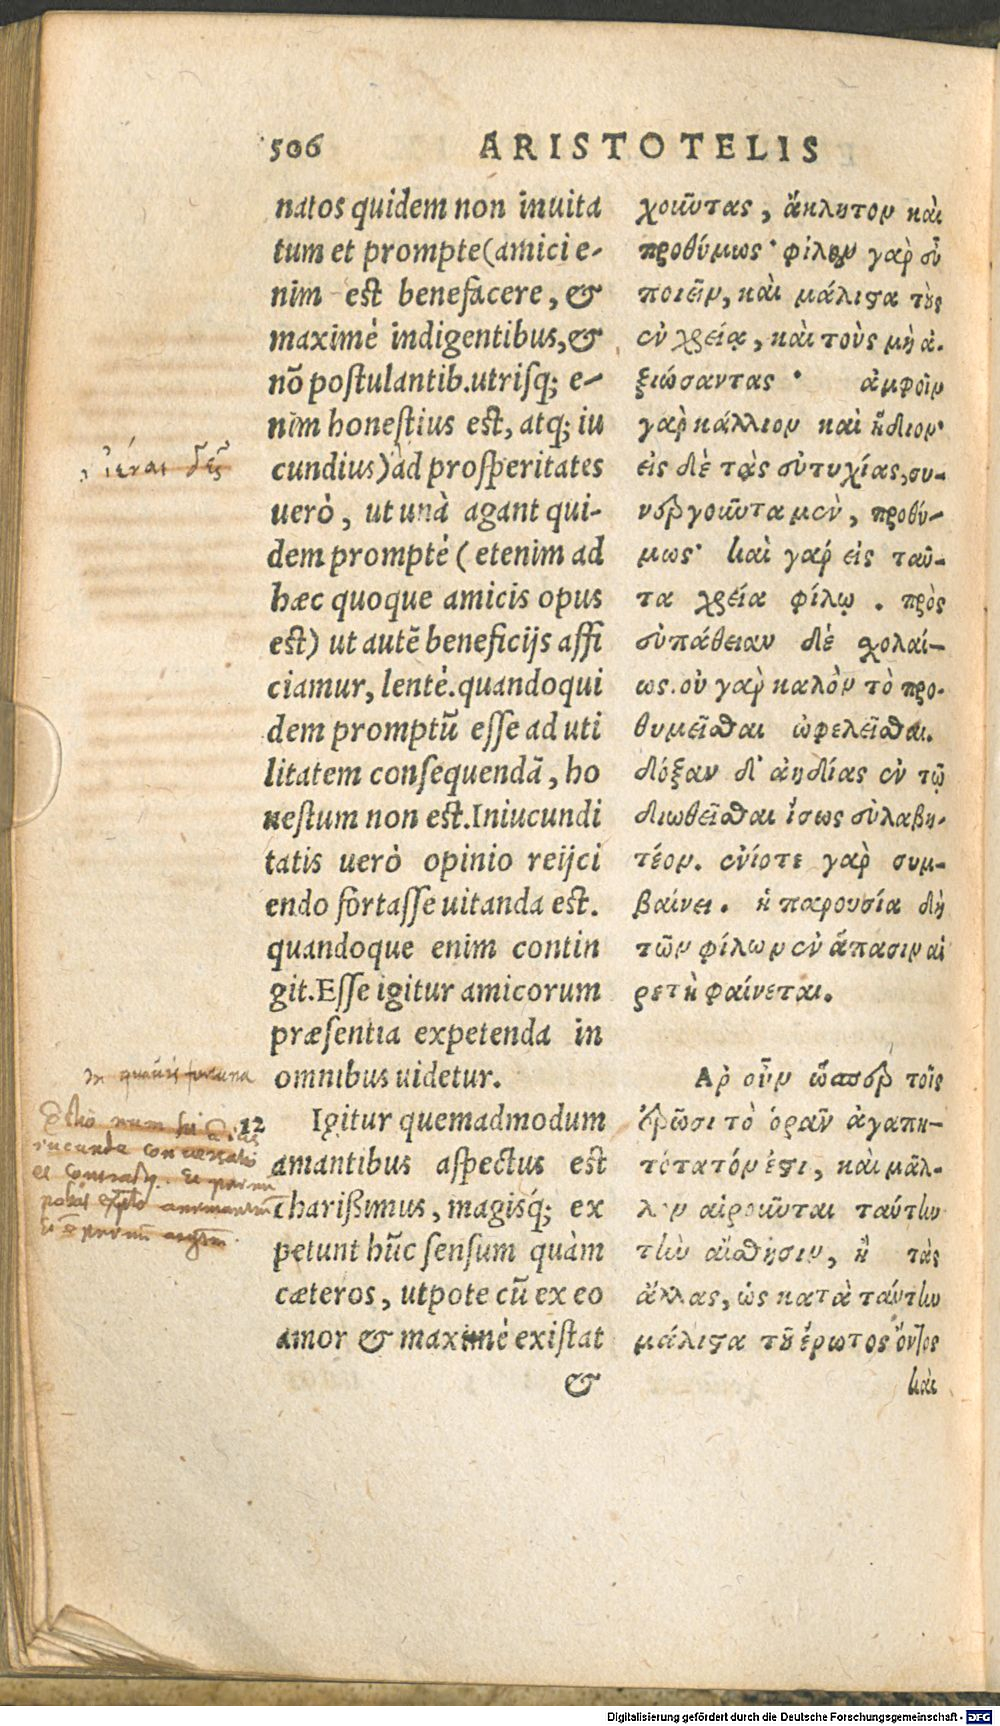 506 ARISTOTELIS
natos quidem non inuita
tum et prompte (amici e-
nim est benefacere, &
maximè indigentibus, &
nō postulantib. utrisq; e-
nim honestius est, atq; iu
cundius) ad prosperitates
uerò, ut unà agant qui-
dem promptè (etenim ad
hæc quoque amicis opus
est) ut autē beneficijs affi
ciamur, lentè. quandoqui
dem promptū esse ad uti
litatem consequendā, ho
nestum non est. Iniucundi
tatis uerò opinio reijci
endo fortasse uitanda est.
quandoque enim contin
git. Esse igitur amicorum
præsentia expetenda in
omnibus uidetur.
12 Igitur quemadmodum
amantibus aspectus est
charißimus, magisq́; ex
petunt hūc sensum quàm
cæteros, utpote cū ex eo
amor & maximè existat
&
χοιῦντας, ἄκλητον καὶ
προθύμως· φίλου γαρ εὖ
ποιεῖν, καὶ μάλιστα τοὺς
ἐν χρείᾳ, καὶ τοὺς μὴ ἀ-
ξιώσαντας· ἀμφοῖν
γαρ κάλλιον καὶ ἥδιον·
εἰς δὲ τὰς εὐτυχίας, συ-
νεργοιῦντα μὲν, προθύ-
μως· καὶ γαρ εἰς ταῦ-
τα χρεία φίλῳ. πρὸς
εὐπάθειαν δὲ σχολαί-
ως. οὐ γαρ καλὸν τὸ προ-
θυμεῖσθαι ὠφελεῖσθαι.
δόξαν δ' ἀηδίας ἐν τῷ
διωθεῖσθαι ἴσως εὐλαβη-
τέον. ἐνίοτε γαρ συμ-
βαίνει. ἡ παρουσία δὴ
τῶν φίλων ἐν ἅπασιν αἱ
ρετὴ φαίνεται.
Αρ οὖν ὥσπερ τοῖς
ἐρῶσι τὸ ὁρᾶν ἀγαπη-
τότατόν ἐστι, καὶ μᾶλ-
λον αἱροιῦνται ταύτην
τὴν αἴσθησιν, ἢ τὰς
ἄλλας, ὡς κατὰ ταύτην
μάλιστα τοῦ ἔρωτος ὄντος
καὶ
ἰέναι δεῖ
In quauis fortuna
Digitalisierung gefördert durch die Deutsche Forschungsgemeinschaft - DFG